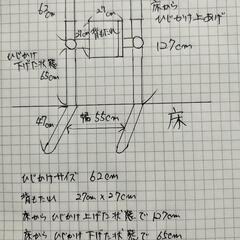 62cm
27cm
27cm
背もたれ
床から
ひじかけ上あげ
127cm
ひじかけ
下げた状態
65cm
47cm
幅55cm
床
ひじかけサイズ 62cm
背もたれ 27cm×27cm
床から ひじかけ上げた状態で 127cm
床から ひじかけ下げた状態で 65cm